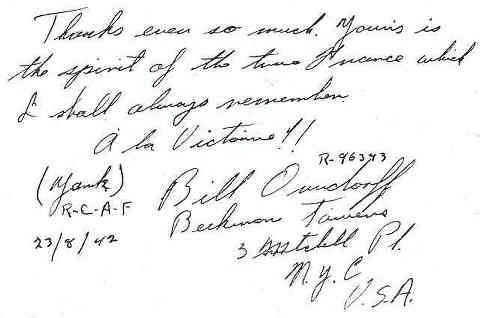 Thanks ever so much. Yours is
the spirit of the true France which
I shall always remember
A la Victoire!!
R-96393
(Yank) Bill Orndorff
R-C-A-F Beekman Towers
23/8/42 3 Mitchell Pl.
N.Y.C
U.S.A.